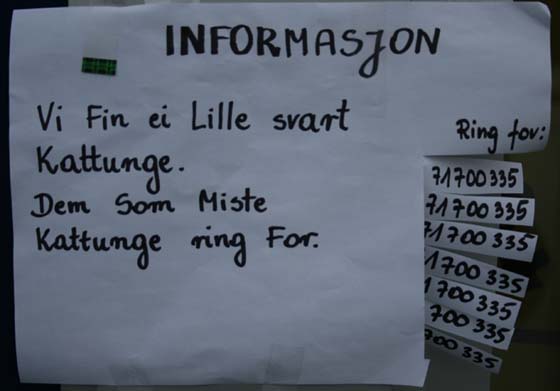 INFORMASJON
Vi Fin ei Lille svart
Kattunge.
Dem Som Miste
Kattunge ring For.
Ring for:
71700335
71700335
71700335
71700335
71700335
700335
700335